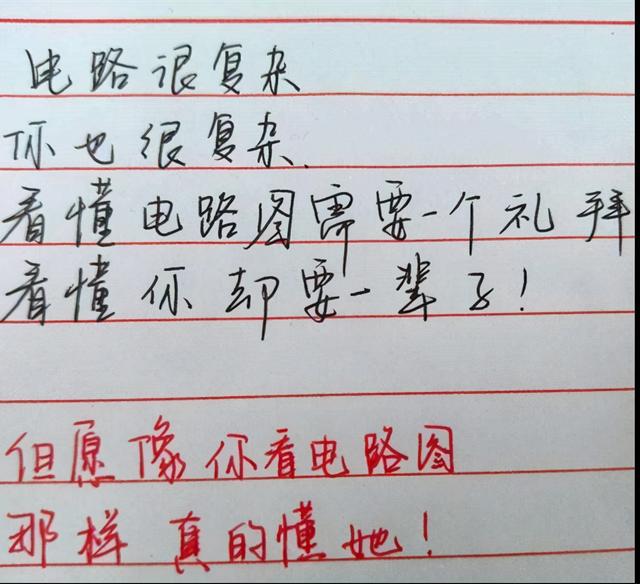 电路很复杂
你也很复杂.
看懂电路图需要一个礼拜
看懂你却要一辈子!
但愿像你看电路图
那样真的懂她!